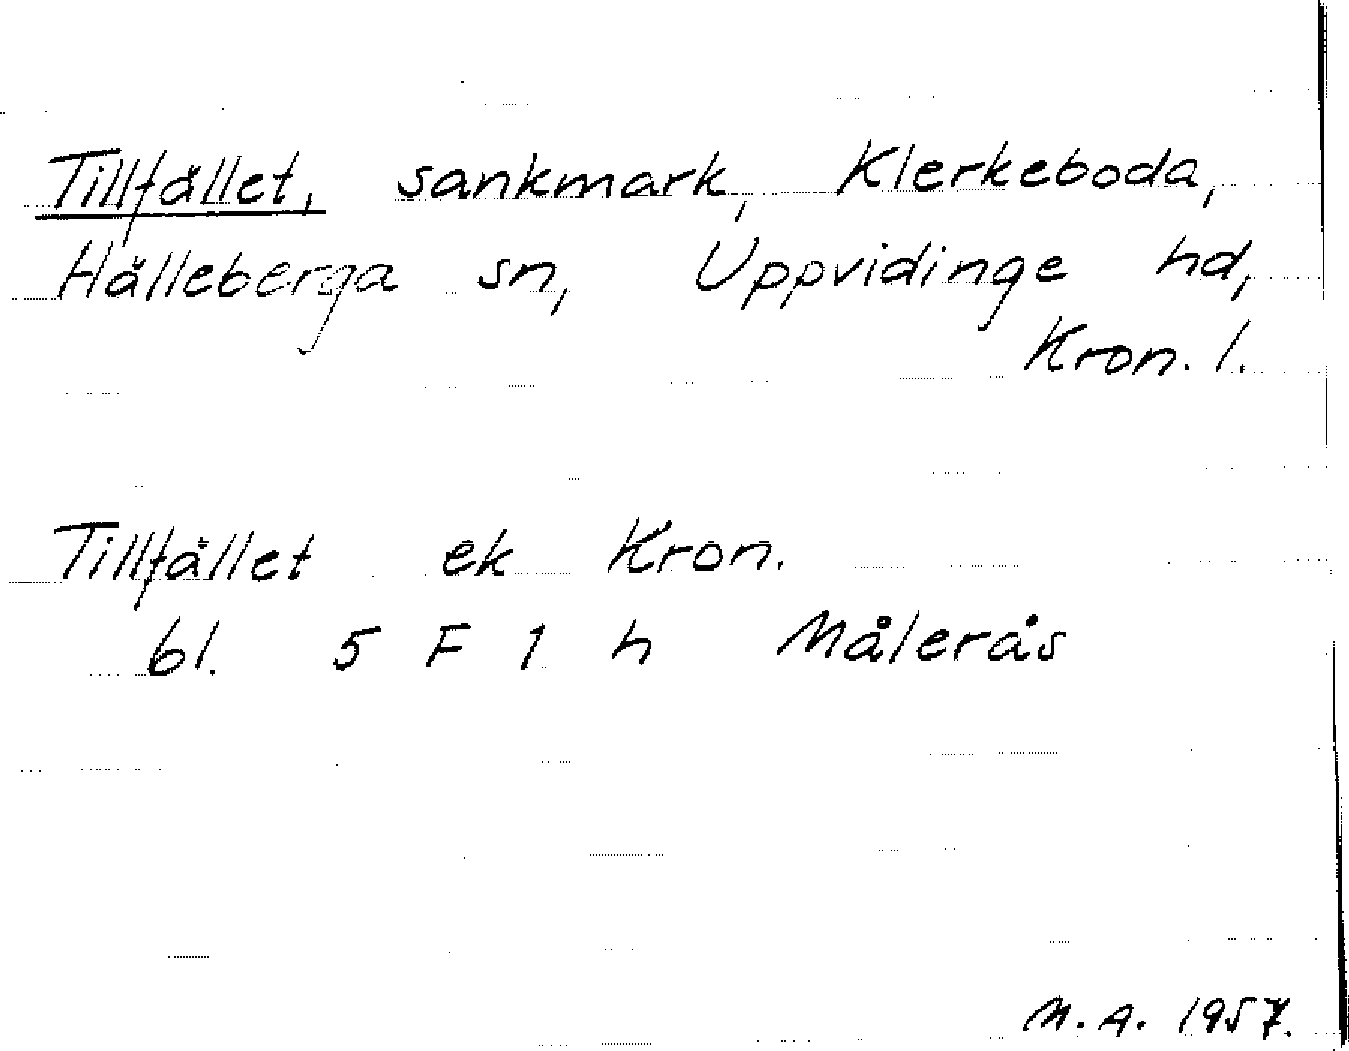 Tillfället, sankmark, Klerkeboda,
Hälleberga sn, Uppvidinge hd,
Kron. l.
Tillfället ek Kron.
bl. 5 F 1 h Målerås
M. A. 1957.